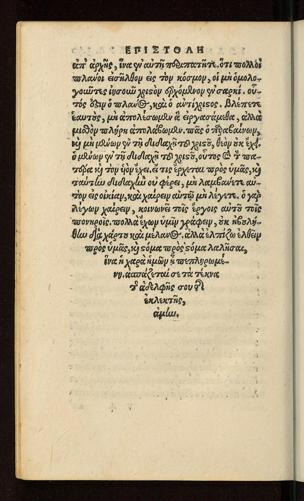 ΕΠΙΣΤΟΛΗ
ἀπ' ἀρχῆς, ἵνα ἐν αὐτῇ περιπατῆτε. ὅτι πολλοὶ
πλάνοι εἰσῆλθον εἰς τὸν κόσμον, οἱ μὴ ὁμολο-
γοῦντες ἰησοῦν χριστὸν ἐρχόμενον ἐν σαρκί. οὗ-
τός ἐστιν ὁ πλάνος, καὶ ὁ ἀντίχριστος. βλέπετε
ἑαυτοὺς, μὴ ἀπολέσωμεν ἃ εἰργασάμεθα, ἀλλὰ
μισθὸν πλήρη ἀπολάβωμεν. πᾶς ὁ παραβαίνων,
καὶ μὴ μένων ἐν τῇ διδαχῇ τοῦ χριστοῦ, θεὸν οὐκ ἔχει.
ὁ μένων ἐν τῇ διδαχῇ τοῦ χριστοῦ, οὗτος καὶ τὸν πα-
τέρα καὶ τὸν υἱὸν ἔχει. εἴ τις ἔρχεται πρὸς ὑμᾶς, καὶ
ταύτην διδαχὴν οὐ φέρει, μὴ λαμβάνετε αὐ-
τὸν εἰς οἰκίαν, καὶ χαίρειν αὐτῷ μὴ λέγετε. ὁ γὰρ
λέγων χαίρειν, κοινωνεῖ τοῖς ἔργοις αὐτοῦ τοῖς
πονηροῖς. πολλὰ ἔχων ὑμῖν γράφειν, οὐκ ἠβουλή-
θην διὰ χάρτου καὶ μέλανος. ἀλλὰ ἐλπίζω ἐλθεῖν
πρὸς ὑμᾶς, καὶ στόμα πρὸς στόμα λαλῆσαι,
ἵνα ἡ χαρὰ ἡμῶν ᾖ πεπληρωμέ-
νη. ἀσπάζεταί σε τὰ τέκνα
τῆς ἀδελφῆς σου τῆς
ἐκλεκτῆς,
ἀμήν.